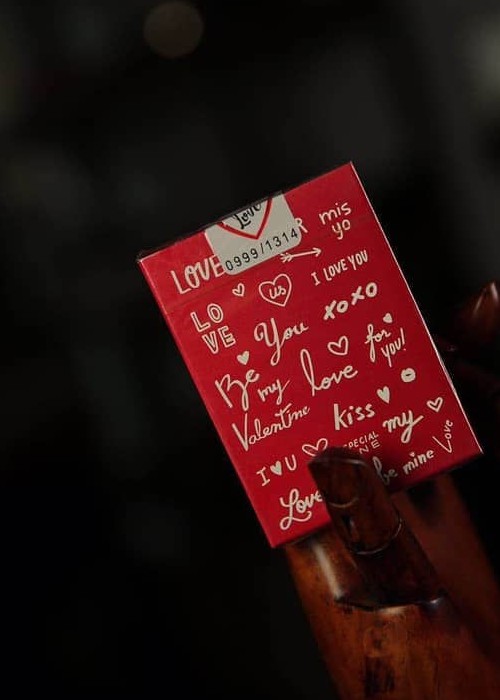 Love
0999/1314
LOVE R mis yo
I LOVE YOU
us
LO
VE
xoxo
You
for you!
Be my love
Valentine
kiss
my
SPECIAL
I U
be mine Love
Love